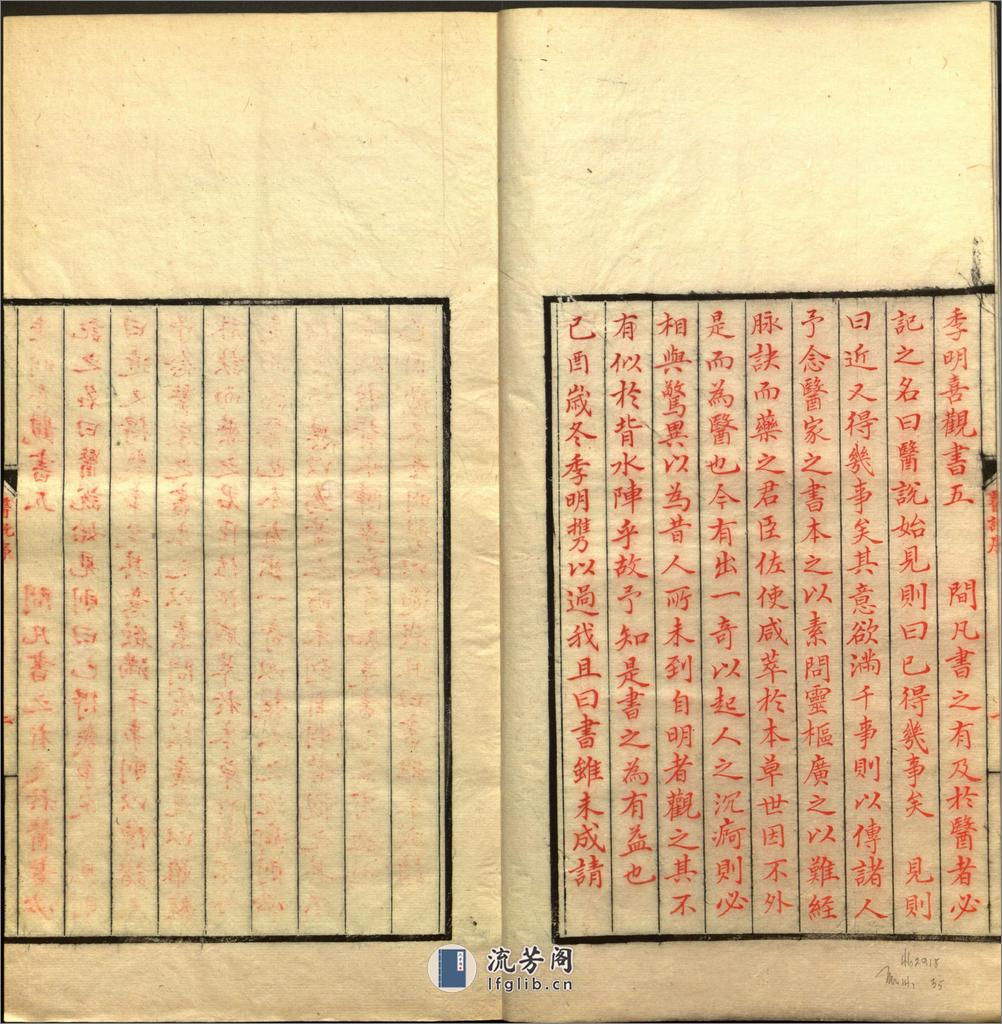 季明喜觀書五　間凡書之有及於醫者必
記之名曰醫說始見則曰已得幾事矣　見則
曰近又得幾事矣其意欲滿千事則以傳諸人
予念醫家之書本之以素問靈樞廣之以難經
脉訣而藥之君臣佐使咸萃於本草世因不外
是而為醫也今有出一奇以起人之沉痾則必
相與驚異以為昔人所未到自明者觀之其不
有似於背水陣乎故予知是書之為有益也
己酉嵗冬季明攜以過我且曰書雖未成請
流芳阁
lfglib.cn